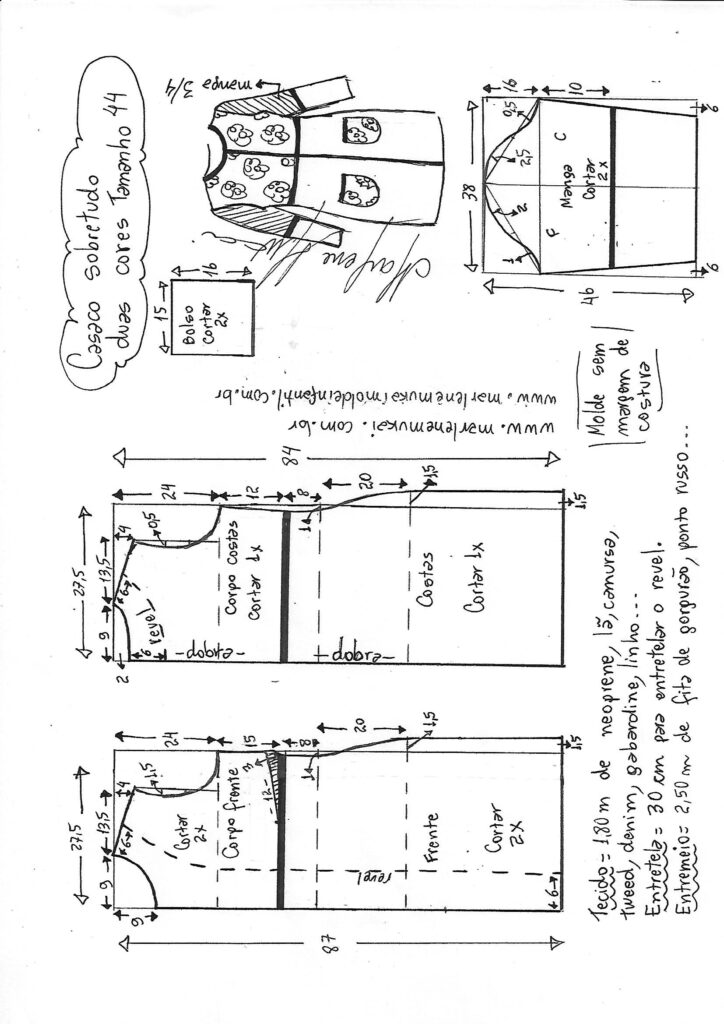 Casaco sobretudo
duas cores Tamanho 44
manga 3/4
15
16
Bolso
Cortar
2x
Marlene
38
16
10
0,5
2,5
2
1
F
C
Manga
Cortar
2x
46
6
6
Molde sem
margem de
costura
www.marlenemukai.com.br
www.marlenemukaimoldeinfantil.com.br
84
24
12
8
20
27,5
13,5
9
4
0,5
6
revel
6
2
Corpo costas
Cortar 1x
-dobra-
-dobra-
1
1,5
1,5
Costas
Cortar 1x
87
24
15
8
20
27,5
13,5
9
4
1,5
6
9
Cortar
2x
Corpo frente
3
-12-
1
1,5
1,5
revel
6
Frente
Cortar
2X
Tecido = 1,80 m de neoprene, lã, camursa,
tweed, denim, gabardine, linho...
Entretela = 30 cm para entretelar o revel.
Entremeio = 2,50 m de fita de gorgurão, ponto russo...